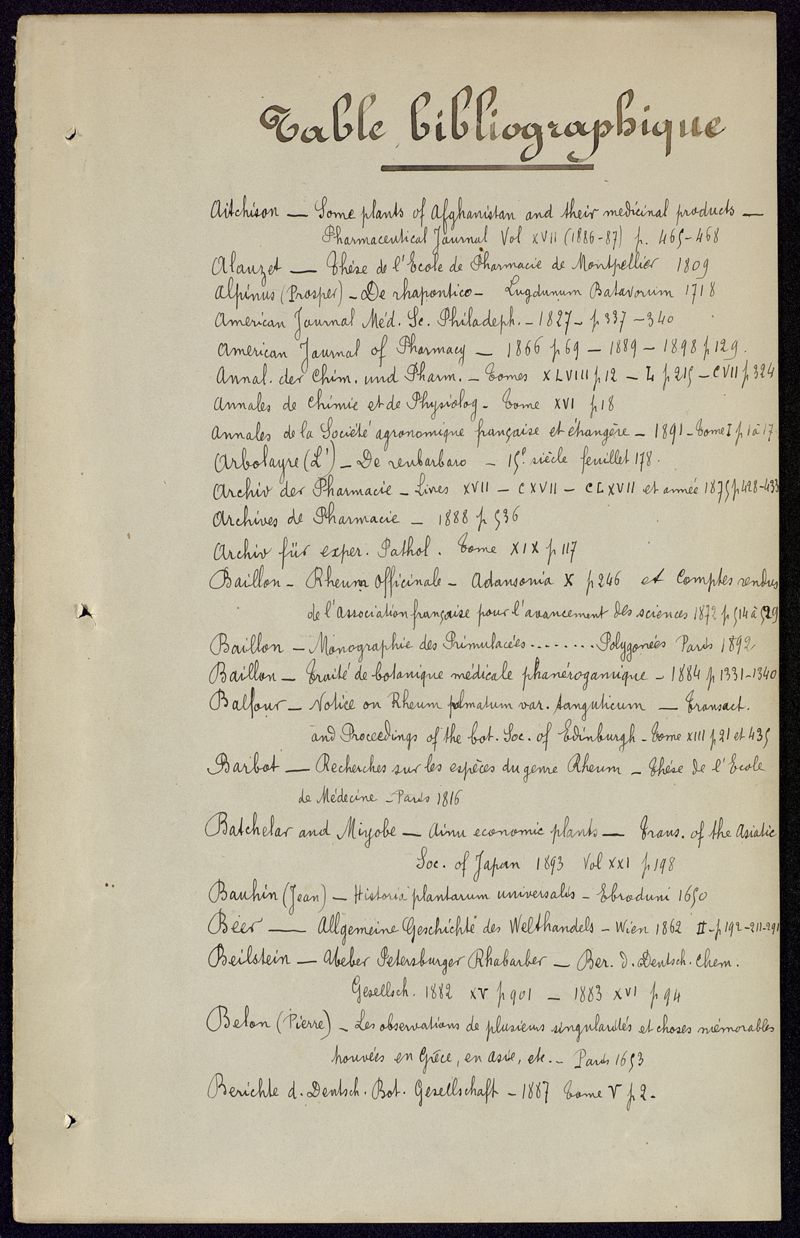 Table bibliographique
Aitchison — Some plants of Afghanistan and their medicinal products —
Pharmaceutical Journal Vol XVII (1886-87) p. 465-468
Alauzet — Thèse de l'Ecole de Pharmacie de Montpellier 1809
Alpinus (Prosper) - De rhapontico - Lugdunum Batavorum 1718
American Journal Méd. Sc. Philadeph. - 1827 - p 337 - 340
American Journal of Pharmacy — 1866 p 69 — 1889 — 1898 p 129.
Annal. der Chim. und Pharm. - Tomes XLVIII p 12 - L p 215 - CVII p 324
Annales de Chimie et de Physiolog - Tome XVI p 18
Annales de la Société agronomique française et étrangère - 1891 - Tome I p 1 à 17
Arbolayre (L') - De reubarbaro - 15e siècle feuillet 178.
Archiv der Pharmacie - Livres XVII - CXVII - CLXVII et année 1875 p 428-433
Archives de Pharmacie - 1888 p 536
Archiv für exper. Pathol. Tome XIX p 117
Baillon - Rheum Officinale - Adansonia X p 246 et Comptes rendus
de l'Association française pour l'avancement des sciences 1872 p 514 à 529
Baillon - Monographie des Primulacées........Polygonées Paris 1892
Baillon - Traité de botanique médicale phanérogamique - 1884 p 1331-1340
Balfour - Notice on Rheum palmatum var. tanguticum — Transact.
and Proceedings of the bot. Soc. of Edinburgh - Tome XIII p 21 et 435
Barbot — Recherches sur les espèces du genre Rheum - Thèse de l'Ecole
de Médecine - Paris 1816
Batchelar and Miyobe - Ainu economic plants — Trans. of the Asiatic
Soc. of Japan 1893 Vol XXI p 198
Bauhin (Jean) - Historia plantarum universalis - Ebroduni 1650
Beer — Allgemeine Geschichte des Welthandels - Wien 1862 II - p 192-211-291
Beilstein - Ueber Petersburger Rhabarber — Ber. d. Deutsch. Chem.
Gesellsch. 1882 XV p 901 - 1883 XVI p 94
Belon (Pierre) - Les observations de plusieurs singularités et choses mémorables
trouvées en Grèce, en Asie, etc. - Paris 1653
Berichte d. Deutsch. Bot. Gesellschaft - 1887 Tome V p 2.